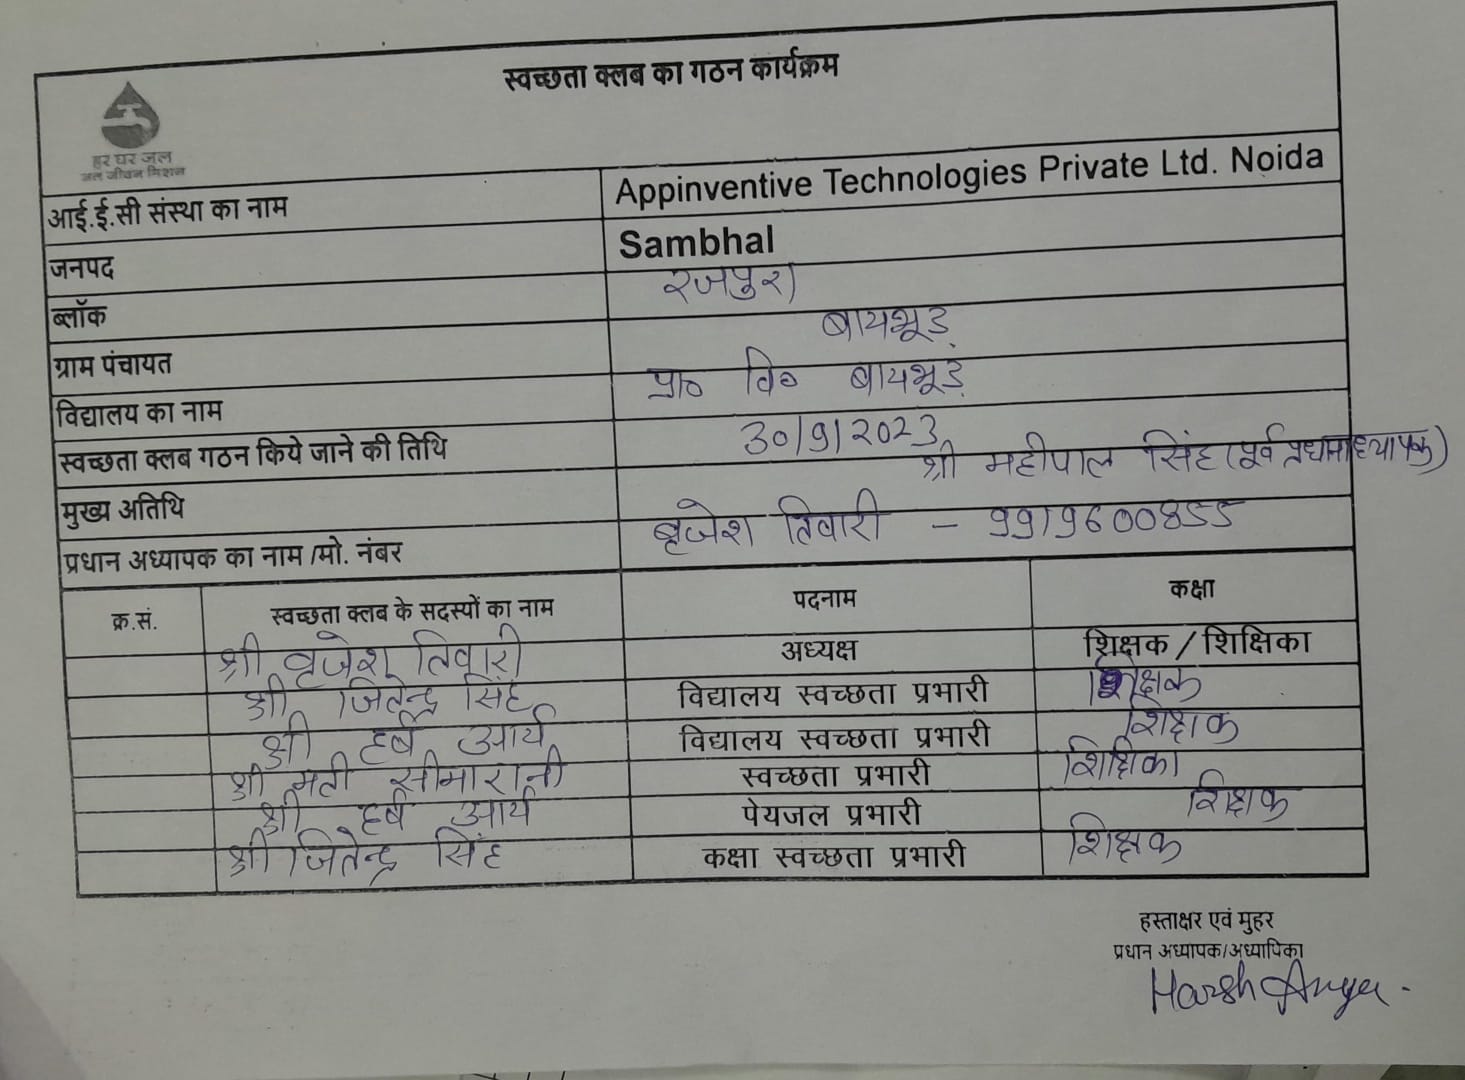 स्वच्छता क्लब का गठन कार्यक्रम
हर घर जल
जल जीवन मिशन
आई.ई.सी संस्था का नाम Appinventive Technologies Private Ltd. Noida
जनपद Sambhal
ब्लॉक रजपुरा
ग्राम पंचायत बायभूड़
विद्यालय का नाम प्रा० वि० बायभूड़
स्वच्छता क्लब गठन किये जाने की तिथि 30/9/2023
मुख्य अतिथि श्री महीपाल सिंह (पूर्व प्रधानाध्यापक)
प्रधान अध्यापक का नाम /मो. नंबर बृजेश तिवारी - 9919600855
क्र.सं. स्वच्छता क्लब के सदस्यों का नाम पदनाम कक्षा
श्री बृजेश तिवारी अध्यक्ष शिक्षक / शिक्षिका
श्री जितेन्द्र सिंह विद्यालय स्वच्छता प्रभारी शिक्षक
श्री हर्ष आर्य विद्यालय स्वच्छता प्रभारी शिक्षक
श्री मती सीमारानी स्वच्छता प्रभारी शिक्षिका
श्री हर्ष आर्य पेयजल प्रभारी शिक्षक
श्री जितेन्द्र सिंह कक्षा स्वच्छता प्रभारी शिक्षक
हस्ताक्षर एवं मुहर
प्रधान अध्यापक/अध्यापिका
Harsh Arya